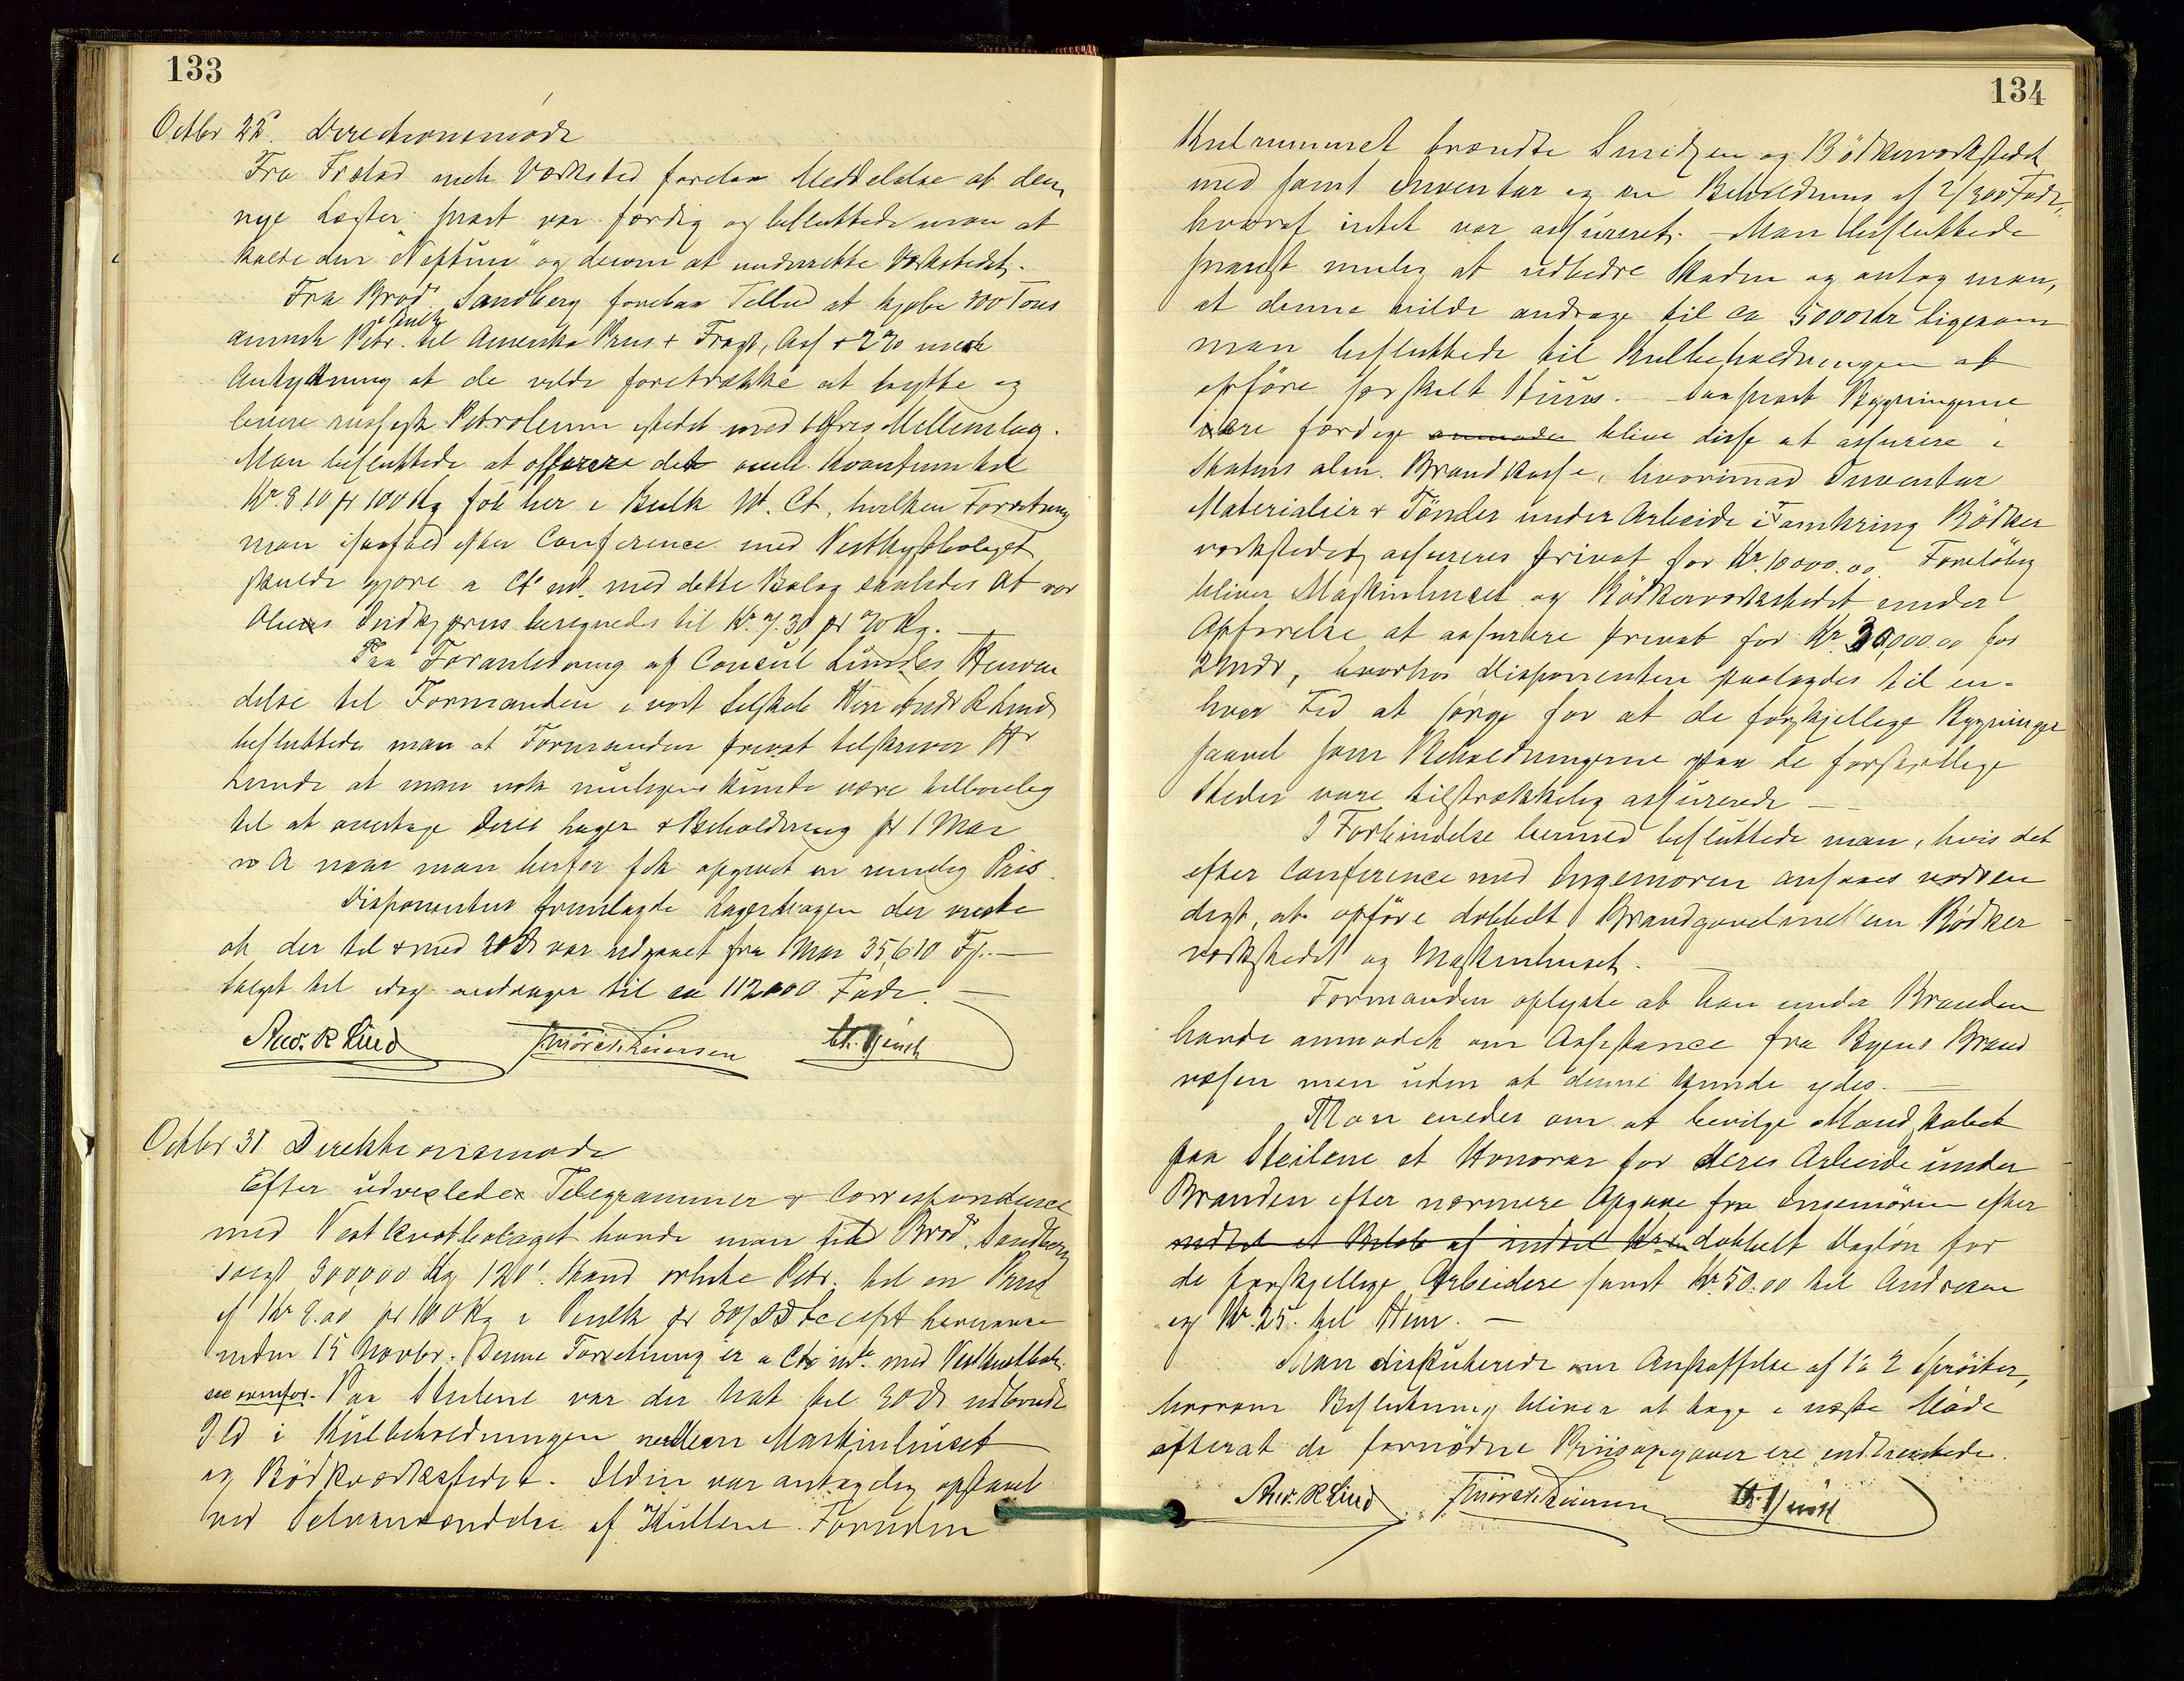 133
Octbr 22. Directionsmøde
Fra Frstad mek Værksted forelaa Meddelelse at den
nye Lægter pram var færdig og besluttede man at
kalde den "Neptun" og derom at underrette Værkstedet.
Fra Brød. Sandberg forelaa Tilbud at kjøbe 300 Tons
amrsk Petr. i Bulk til Amerika Pris + Fragt, Ass + 2% med
Antydning at de vilde foretrække at bytte og
levere russisk Petroleum istedet med Mellemlag.
Man besluttede at offerere det omh. Kvantum til
Kr. 8.10 pr 100 Kg fob her i Bulk Nt. Ct, hvilken Forretning
man isaafald efter Conference med Vestkystbolaget
skulde gjøre a Ct md. med dette Bolag saaledes at vor
Olies Indkjpris beregnedes til Kr. 7.30 pr % Kg.
Paa Foranledning af Consul Lundes Henven
delse til Formanden i vort Selskab Herr Andr R Lind
besluttede man at Formanden privat tilskriver Hr
Lunde at man nok muligens kunde være tilbøielig
til at overtage deres Lager & Beholdning pr 1 Mar
n A naar man herfor fik opgivet en rimelig Pris.
Disponenten fremlagde Lagerbogen der viste
at der til & med 20 ds var udgaaet fra 1 Mar 35,610 Fj.
Salget til idag andrager til ca 112000 Fade.
Andr. R Lind Thorvald Leiersen
Octbr 31 Direktionsmøde
Efter udvexlede Telegrammer & Correspondence
med Vestkystbolaget havde man til Brød. Sandberg
solgt 300,000 Kg 120' Stand hvite Petr. til en Pris
af Kr 8.00 pr 100 Kg i Bulk pr 30/ds accept leverance
inden 15 Novbr. Denne Forretning er a Cto md. med Vestkystbol.
see ovenfor. Paa Steilene var der Nat til 30 ds udbrudt
Ild i Kulbeholdningen mellem Maskinhuset
og Bødkerværkstedet. Ilden var antagelig opstaaet
ved Selvantændelse af Kullene. Foruden
134
Kulrummet brændte Smidjen og Bødkerværkstedet
med samt Inventar og en Beholdning af 2/300 Fade,
hvoraf intet var assureret. Man besluttede
snarest mulig at udbedre Skaden og antog man,
at denne vilde andrage til ca 5000 Kr ligesom
man besluttede til Kulbeholdningen at
opføre særskilt Huus. Saasnart Bygningerne
ere færdige blive disse at assurere i
Statens alm. Brandkasse, hvorimod Inventar
Materialier & Tønder under Arbeide i & omkring Bødker
værkstedet assureres privat for Kr. 10000.00. Foreløbig
bliver Maskinhuset og Bødkerværkstedet under
Opførelse at assurere privat for Kr 30,000.00 for
2 Mdr, hvorhos Disponenten paalagdes til en-
hver Tid at sørge for at de forskjellige Bygninger
saavel som Beholdningerne paa de forskjellige
Steder vare tilstrækkelig assurerede
I Forbindelse hermed besluttede man, hvis det
efter Conference med Ingeniøren ansaaes nødven
digt, at opføre dobbelt Brandgavl mellem Bødker
værkstedet og Maskinhuset.
Formanden oplyste at han under Branden
havde anmodet om Assistance fra Byens Brand
væsen men uden at denne kunde ydes.
Man enedes om at bevilge Mandskabet
paa Steilene et Honorar for deres Arbeide under
Branden efter nærmere Opgave fra Ingeniøren efter
indtil et Beløb af indtil Kr dobbelt Dagløn for
de forskjellige Arbeidere samt Kr. 50.00 til Andresen
og Kr. 25. til Hem.
Man diskuterede om Anskaffelse af 1 à 2 Sprøiter,
hvorom Beslutning bliver at tage i næste Møde
efterat de fornødne Priisopgaver ere indhentede.
Andr. R Lind Thorvald Leiersen